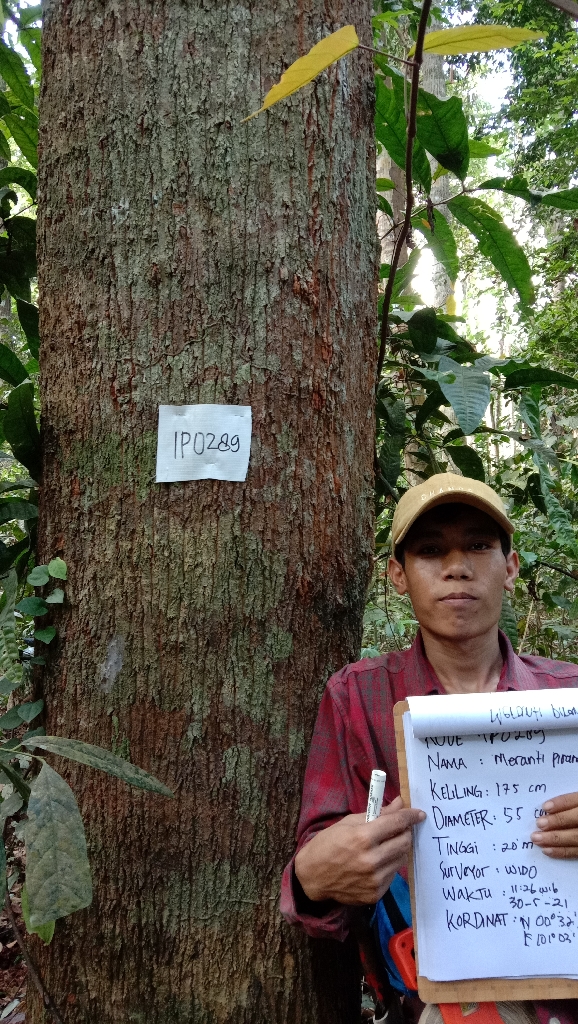 1P0289
KODE : 1P0289
NAMA : Meranti
KELILING : 175 cm
DIAMETER : 55 cm
TINGGI : 20 m
Surveyor : WIDO
WAKTU : 11:26 wib
30-5-21
KORDINAT : N 00°32'
E 101°03'